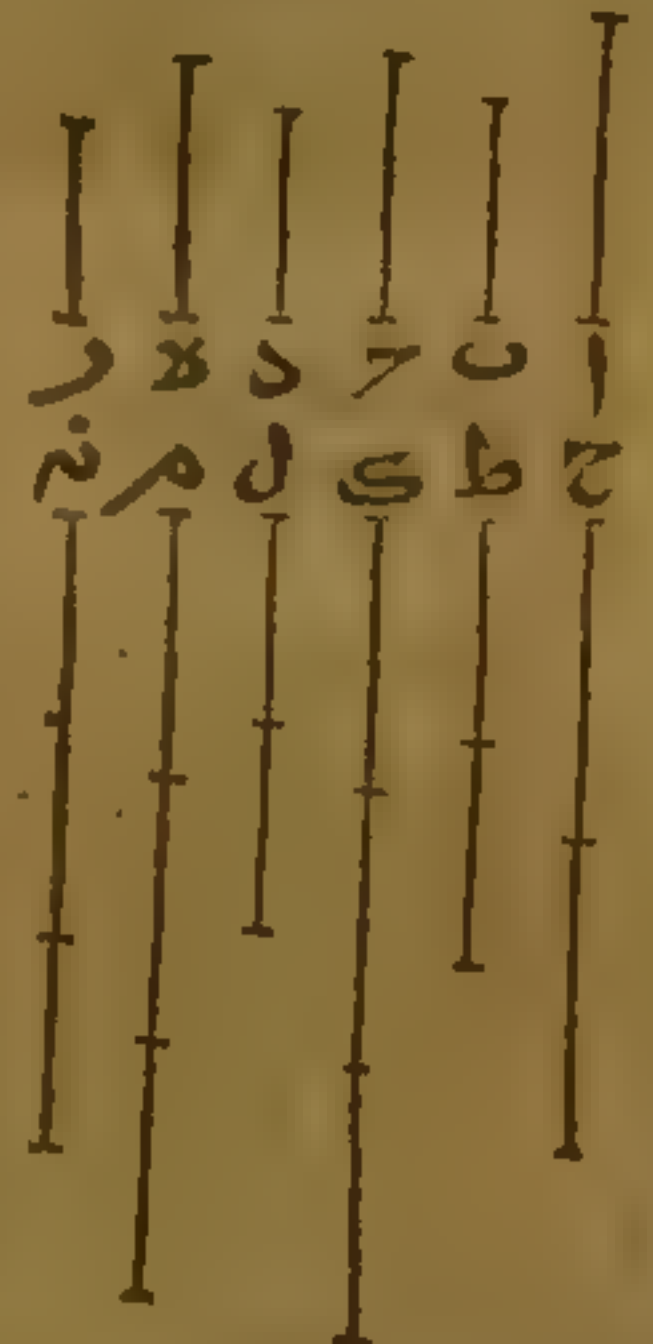 ا ب ج د ه ر
ح ط ك ل م ن